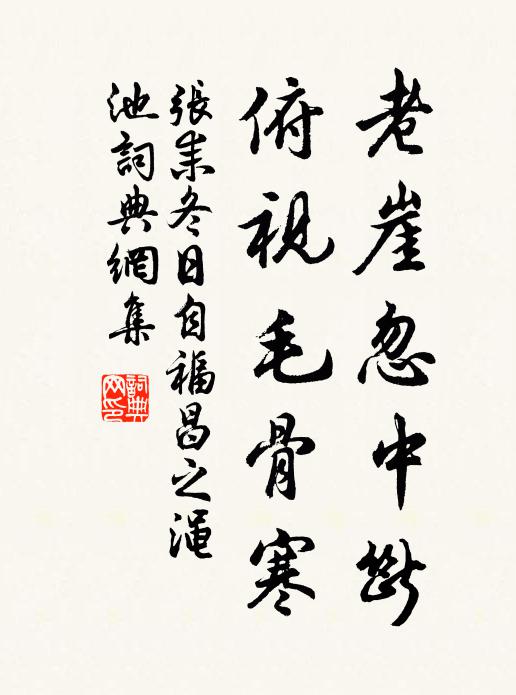 老崖忽中斷
俯視毛骨寒
張耒冬日自福昌之澠
池詞典網集
詞典
网印